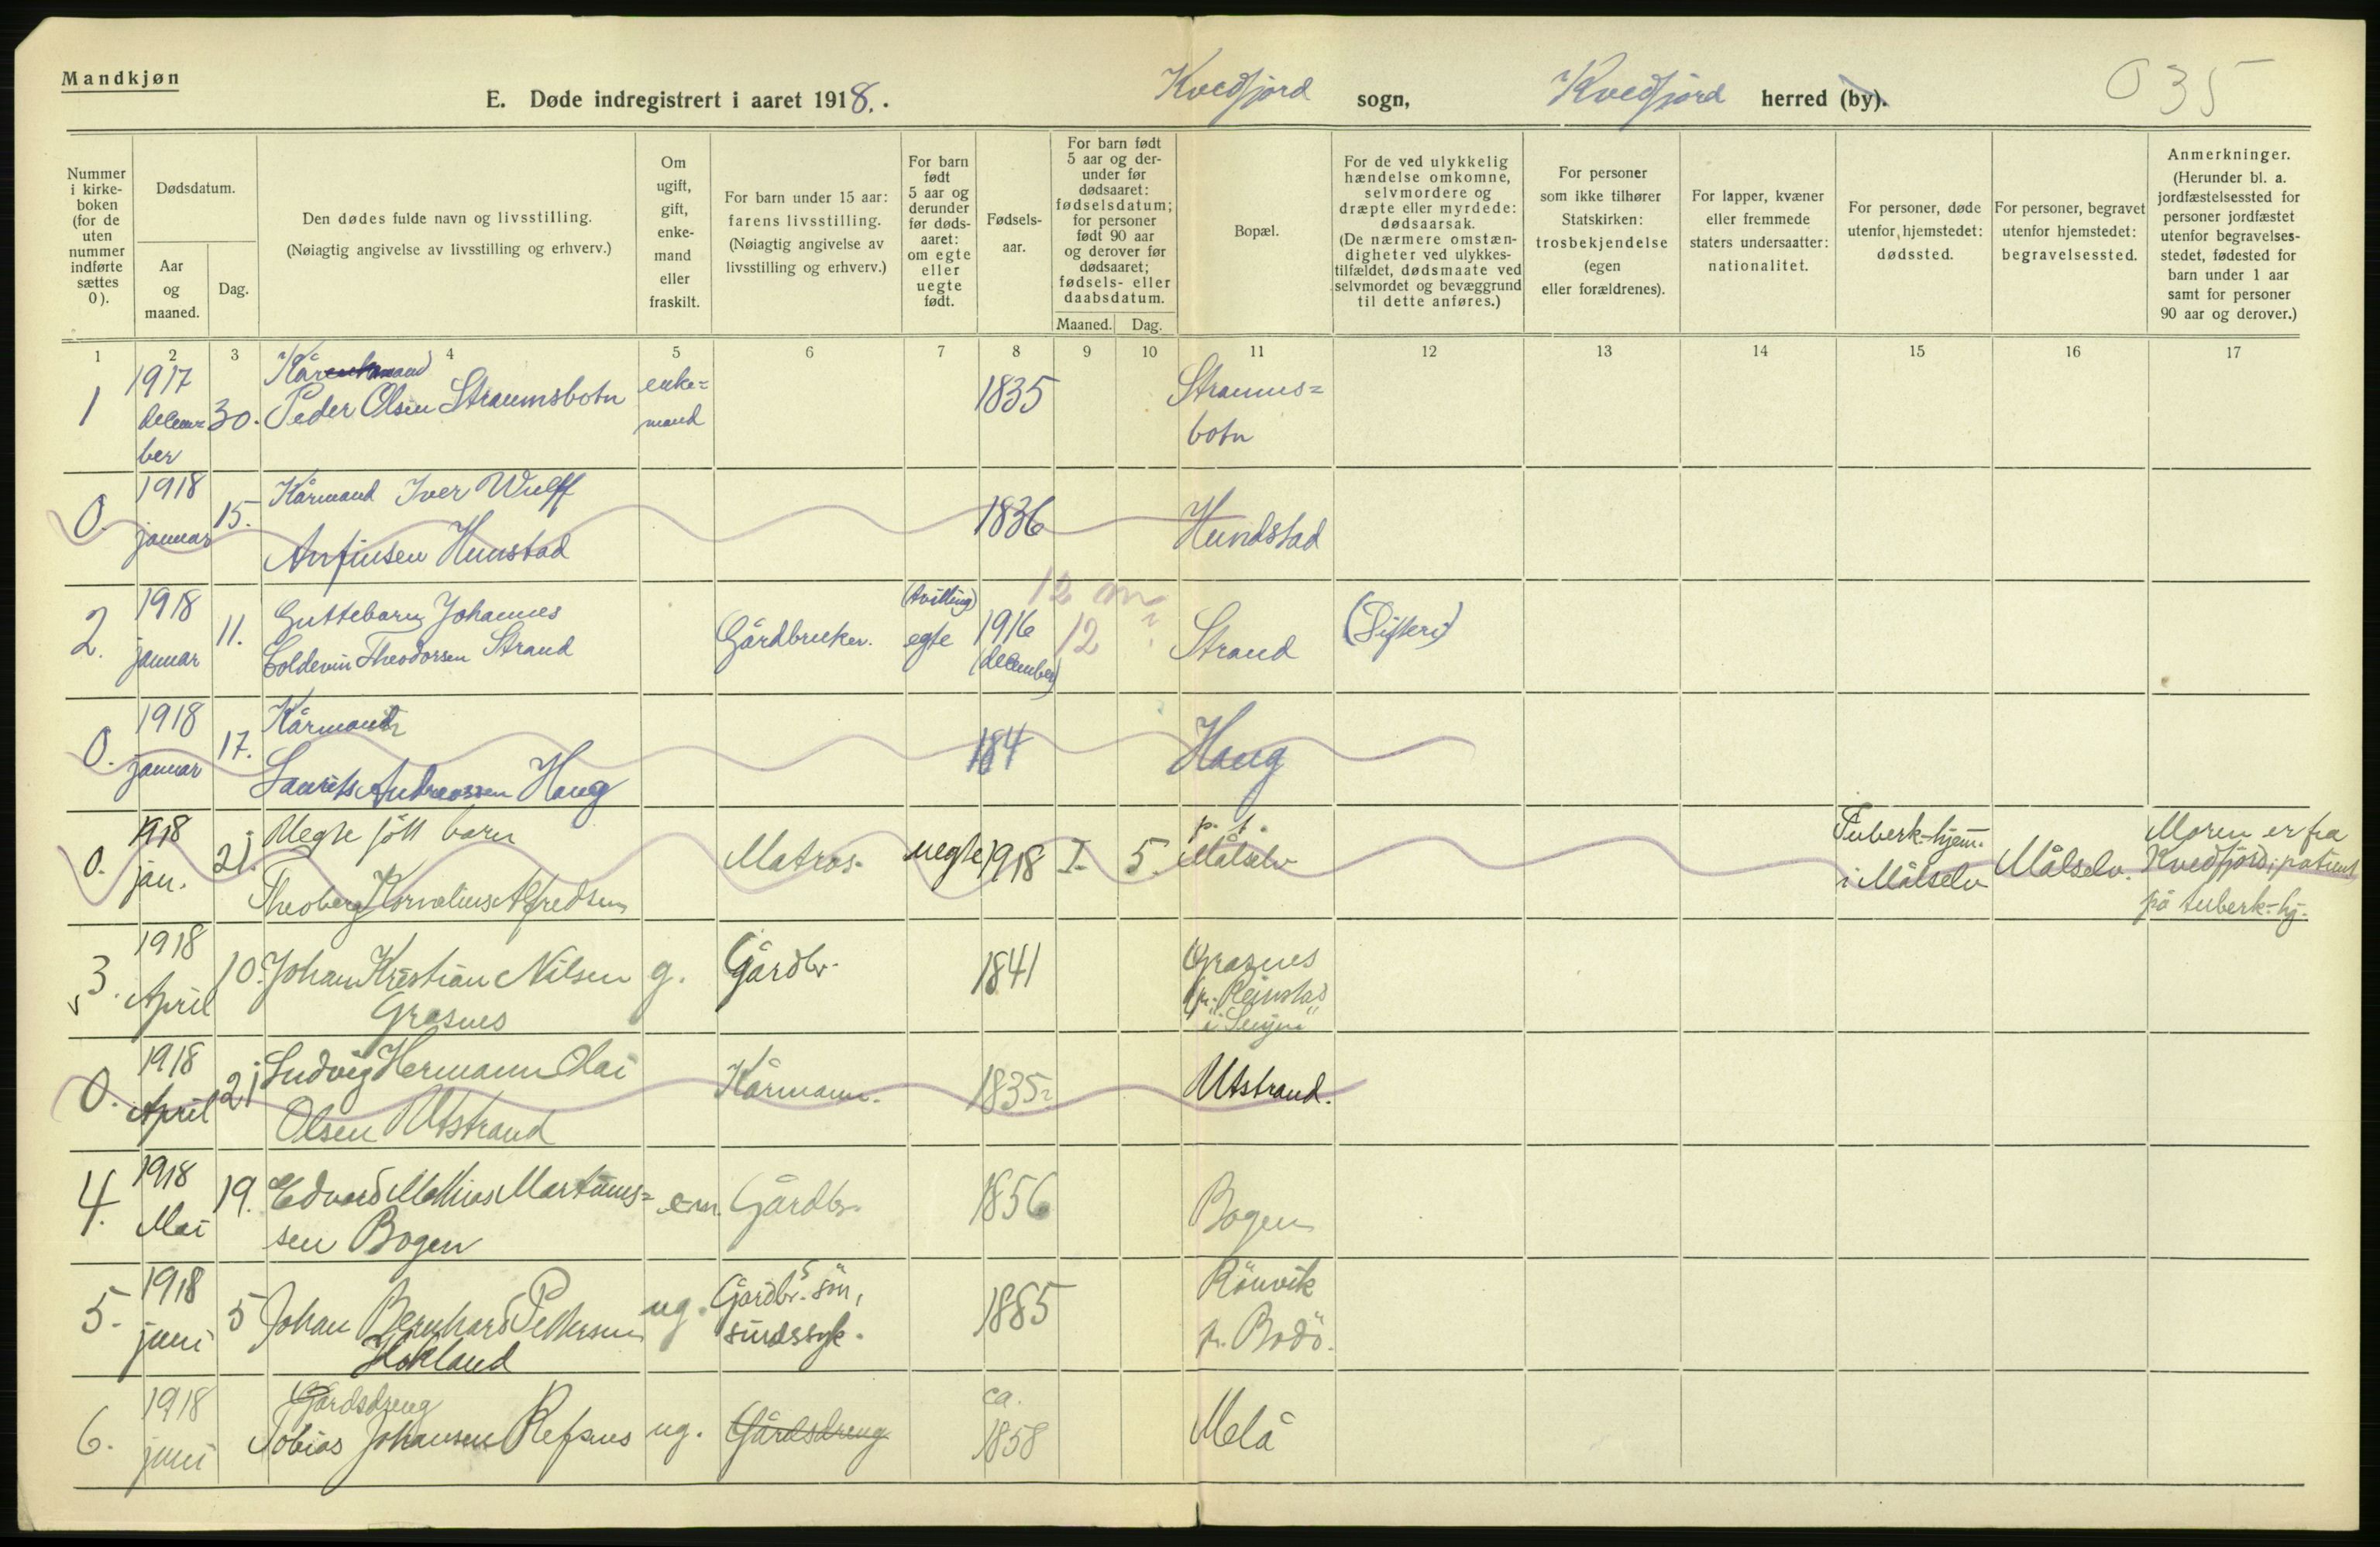 Mandkjøn
E. Døde indregistrert i aaret 1918. .
Kvedfjord sogn,
Kvedfjord herred (by).
035
Nummer
i kirke-
boken
(for de
uten
nummer
indførte
sættes
0).
Dødsdatum.
Aar
og
maaned.
Dag.
Den dødes fulde navn og livsstilling.
(Nøiagtig angivelse av livsstilling og erhverv.)
Om
ugift,
gift,
enke-
mand
eller
fraskilt.
For barn under 15 aar:
farens livsstilling.
(Nøiagtig angivelse av
livsstilling og erhverv.)
For barn
født
5 aar og
derunder
før døds-
aaret:
om egte
eller
uegte
født.
Fødsels-
aar.
For barn født
5 aar og der-
under før
dødsaaret:
fødselsdatum;
for personer
født 90 aar
og derover før
dødsaaret;
fødsels- eller
daabsdatum.
Maaned. Dag.
Bopæl.
For de ved ulykkelig
hændelse omkomne,
selvmordere og
dræpte eller myrdede:
dødsaarsak.
(De nærmere omstæn-
digheter ved ulykkes-
tilfældet, dødsmaate ved
selvmordet og bevæggrund
til dette anføres.)
For personer
som ikke tilhører
Statskirken:
trosbekjendelse
(egen
eller forældrenes).
For lapper, kvæner
eller fremmede
staters undersaatter:
nationalitet.
For personer, døde
utenfor hjemstedet:
dødssted.
For personer, begravet
utenfor hjemstedet:
begravelsessted.
Anmerkninger.
(Herunder bl. a.
jordfæstelsessted for
personer jordfæstet
utenfor begravelses-
stedet, fødested for
barn under 1 aar
samt for personer
90 aar og derover.)
1 2 3 4 5 6 7 8 9 10 11 12 13 14 15 16 17
1917 Kårmand
1 decem= 30. Peder Olsen Straumsbotn enke= 1835 Straums=
ber mand botn
1918 Kårmand Iver Wulff
0. januar 15. Anfinsen Hunstad 1836 Hundstad
1918 Guttebarn Johannes (tvilling)
2. januar 11. Coldevin Theodorsen Strand Gårdbruker. egte 1916 12 Strand (Difteri)
(december)
1918 Kårmand
0. januar 17. Laurits Andreassen Haug 184 Haug
1918 Uegte født barn p. t. Tuberk-hjem. Moren er fra
0. jan. 21. Matros. uegte 1918 I. 5. Målselv i Målselv Målselv. Kvedfjord; patient
Theoberg Kornelius Alfredsen på tuberk.-hj.
1918
3. April 10. Johan Kristian Nilsen g. Gårdbr. 1841 Grasnes
Grasnes pr. Reinstad
"i Senjen"
1918 Ludvig Hermann Olai
0. April 21 Kårmann. 1835? Utstrand.
Olsen Utstrand
1918
4. Mai 19. Edvard Mathias Martinus= em. Gårdbr. 1856 Bogen
sen Bogen
1918 Gårdbr.s sön, Rönvik
5. juni 5 Johan Bernhard Pettersen ug. sindssyk. 1885 pr. Bodö.
Hokland
1918 Gårdsdreng ca.
6. juni Tobias Johansen Refsnes ug. Gårdsdreng 1858 Melå